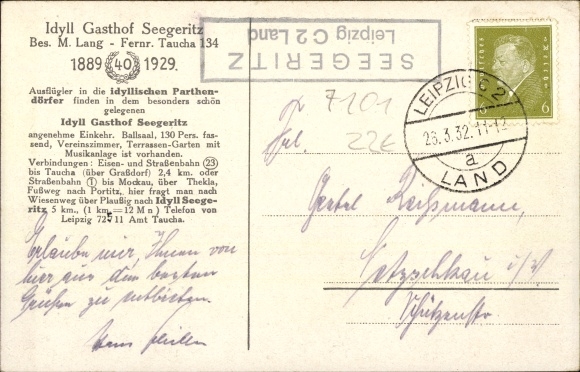 Idyll Gasthof Seegeritz
Bes. M. Lang - Fernr. Taucha 134
1889 40 1929.
Ausflügler in die idyllischen Parthen-
dörfer finden in dem besonders schön
gelegenen
Idyll Gasthof Seegeritz
angenehme Einkehr. Ballsaal, 130 Pers. fas-
send, Vereinszimmer, Terrassen-Garten mit
Musikanlage ist vorhanden.
Verbindungen: Eisen- und Straßenbahn (23)
bis Taucha (über Graßdorf) 2,4 km. oder
Straßenbahn (1) bis Mockau, über Thekla,
Fußweg nach Portitz, hier fragt man nach
Wiesenweg über Plaußig nach Idyll Seege-
ritz 5 km., (1 km = 12 Mn) Telefon von
Leipzig 72511 Amt Taucha.
Erlaube mir, Ihnen von
hier aus den besten
Grüßen zu entbieten.
SEEGERITZ
Leipzig C 2 Land
Deutsches Reich
6 6
LEIPZIG C 2
23.3.32.11-12
a
LAND
7101
22€
Frl.
Gertel
Netzschkau i/V.
Schützenstr